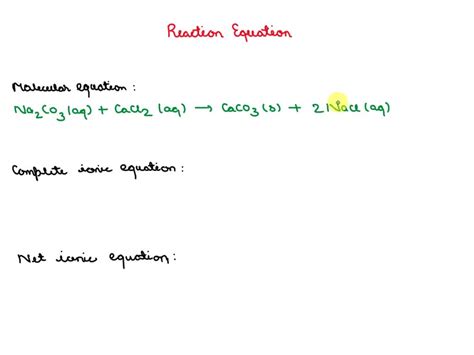 Reaction Equation
Molecular equation:
Na₂CO₃(aq) + CaCl₂ (aq) → CaCO₃(s) + 2NaCl(aq)
Complete ionic equation:
Net ionic equation: